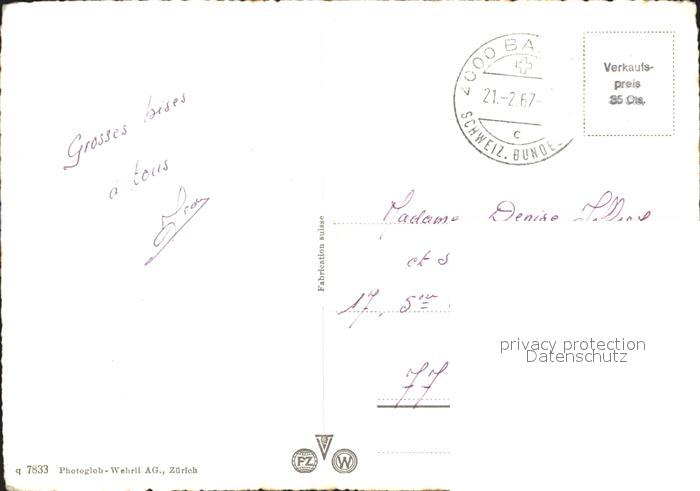 Grosses bises
à tous
Fabrication suisse
4000 BA
21.-2.67-
c
SCHWEIZ. BUNDE
Verkaufs-
preis
35 Cts.
Madame Denise
et s
17, 5
77
privacy protection
Datenschutz
PZ W
q 7833 Photoglob-Wehrli AG., Zürich